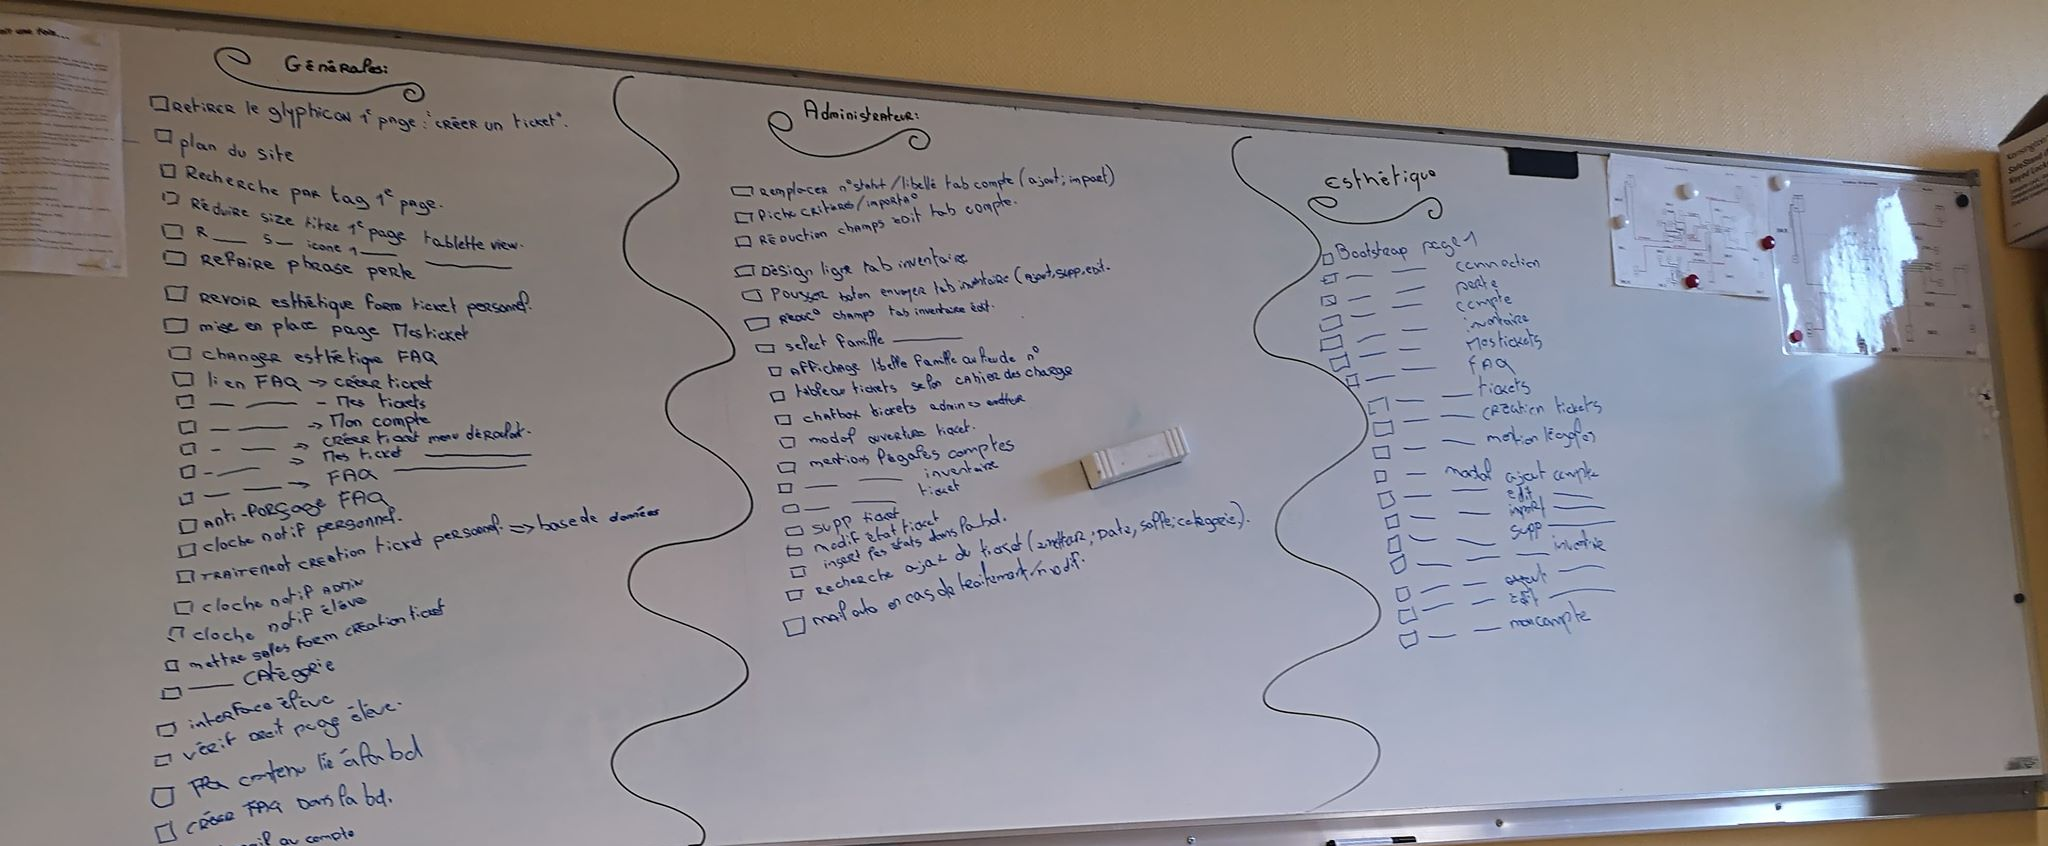 Générales:
Retirer le glyphicon 1e page : "créer un ticket".
plan du site
Recherche par tag 1e page.
Réduire size titre 1e page tablette view.
R___ S__ icone 1____ ________
Refaire phrase perte
Revoir esthétique form ticket personnel.
mise en place page Mesticket
changer esthétique FAQ
lien FAQ → créer ticket
— —— - Mes tickets
— —— → Mon compte
- — → créer ticket menu déroulant.
- — → Mes ticket ________
— — → FAQ ________
Anti-forçage FAQ
cloche notif personnel.
traitement création ticket personnel. => base de données
cloche notif Admin
cloche notif élève
mettre salles form création ticket
—— catégorie
interface élève
vérif droit page élève.
FAQ contenu lié à la bd
créer FAQ dans la bd.
au compte
Administrateur:
Remplacer n°statut/libellé tab compte (ajout; import)
Fiche critères/import°
Réduction champs edit tab compte.
Design ligne tab inventaire
Pousser boton envoyer tab inventaire (Ajout, supp, edit.
Réduc° champs tab inventaire edit.
select famille ________
Affichage libelle famille au lieu de n°
tableau tickets selon cahier des charge
chatbox tickets admin <=>
modal ouverture ticket.
mentions légales comptes
— —— inventaire
— —— ticket
supp ticket
modif état ticket
insert les états dans la bd.
Recherche ajax du ticket (emetteur, Date, salle; categorie).
mail auto en cas de traitement/modif.
Esthétique
Bootstrap page 1
— — connection
— — perte
— — compte
— — inventaire
— — Mestickets
— — FAQ
— — tickets
— — création tickets
— — mention légales
— modal ajout compte
— — edit ——
— — import ——
— — supp ——
— — inventaire
— — ajout ——
— — edit ——
— — mon compte
Kensington